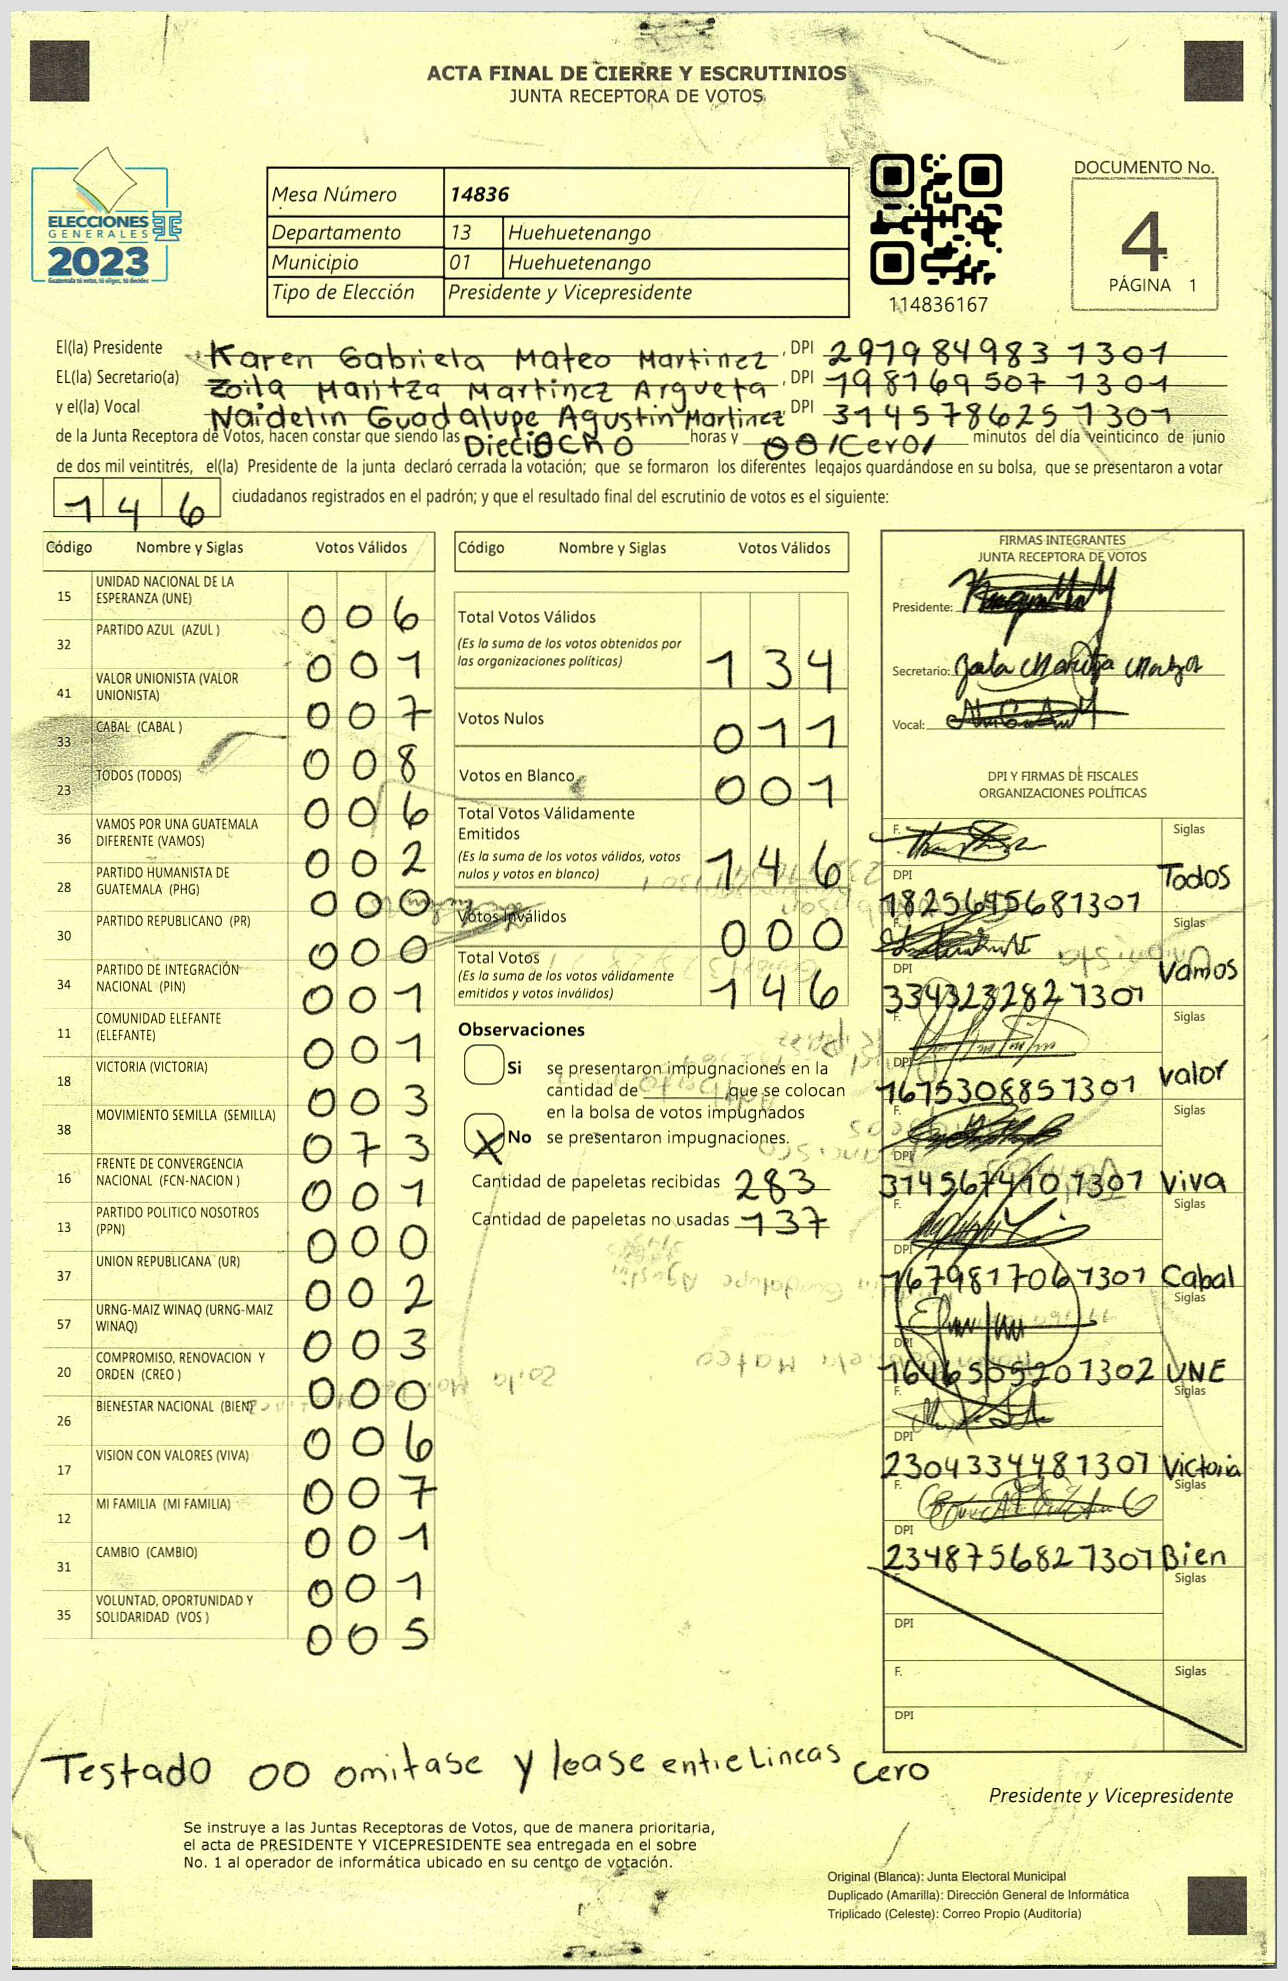 ACTA FINAL DE CIERRE Y ESCRUTINIOS
JUNTA RECEPTORA DE VOTOS
ELECCIONES
GENERALES
2023
Guatemala tú votas, tú eliges, tú decides
Mesa Número 14836
Departamento 13 Huehuetenango
Municipio 01 Huehuetenango
Tipo de Elección Presidente y Vicepresidente
114836167
DOCUMENTO No.
4
PÁGINA 1
El(la) Presidente Karen Gabriela Mateo Martinez, DPI 2979849831301
EL(la) Secretario(a) Zoila Maritza Martinez Argueta, DPI 1981695071301
y el(la) Vocal Naidelin Guadalupe Agustin Martinez DPI 3145786251301
de la Junta Receptora de Votos, hacen constar que siendo las DieciOchO horas y 00/Cero/ minutos del día veinticinco de junio
de dos mil veintitrés, el(la) Presidente de la junta declaró cerrada la votación; que se formaron los diferentes legajos guardándose en su bolsa, que se presentaron a votar
146 ciudadanos registrados en el padrón; y que el resultado final del escrutinio de votos es el siguiente:
Código Nombre y Siglas Votos Válidos
15 UNIDAD NACIONAL DE LA ESPERANZA (UNE) 006
32 PARTIDO AZUL (AZUL ) 001
41 VALOR UNIONISTA (VALOR UNIONISTA) 007
33 CABAL (CABAL ) 008
23 TODOS (TODOS) 006
36 VAMOS POR UNA GUATEMALA DIFERENTE (VAMOS) 002
28 PARTIDO HUMANISTA DE GUATEMALA (PHG) 000
30 PARTIDO REPUBLICANO (PR) 000
34 PARTIDO DE INTEGRACIÓN NACIONAL (PIN) 001
11 COMUNIDAD ELEFANTE (ELEFANTE) 001
18 VICTORIA (VICTORIA) 003
38 MOVIMIENTO SEMILLA (SEMILLA) 073
16 FRENTE DE CONVERGENCIA NACIONAL (FCN-NACION ) 001
13 PARTIDO POLITICO NOSOTROS (PPN) 000
37 UNION REPUBLICANA (UR) 002
57 URNG-MAIZ WINAQ (URNG-MAIZ WINAQ) 003
20 COMPROMISO, RENOVACION Y ORDEN (CREO ) 000
26 BIENESTAR NACIONAL (BIEN) 006
17 VISION CON VALORES (VIVA) 007
12 MI FAMILIA (MI FAMILIA) 001
31 CAMBIO (CAMBIO) 001
35 VOLUNTAD, OPORTUNIDAD Y SOLIDARIDAD (VOS ) 005
Código Nombre y Siglas Votos Válidos
Total Votos Válidos
(Es la suma de los votos obtenidos por
las organizaciones políticas) 134
Votos Nulos 011
Votos en Blanco 001
Total Votos Válidamente
Emitidos
(Es la suma de los votos válidos, votos
nulos y votos en blanco) 146
Votos Inválidos 000
Total Votos
(Es la suma de los votos válidamente
emitidos y votos inválidos) 146
Observaciones
Si se presentaron impugnaciones en la
cantidad de ________ que se colocan
en la bolsa de votos impugnados
X No se presentaron impugnaciones.
Cantidad de papeletas recibidas 283
Cantidad de papeletas no usadas 137
FIRMAS INTEGRANTES
JUNTA RECEPTORA DE VOTOS
Presidente:
Secretario:
Vocal:
DPI Y FIRMAS DE FISCALES
ORGANIZACIONES POLÍTICAS
F. Siglas
DPI 1825645681301 Todos
F. Siglas
DPI 3343232821301 Vamos
F. Siglas
DPI 1675308851301 valor
F. Siglas
DPI 3145674101301 Viva
F. Siglas
DPI 1679817061301 Cabal
F. Siglas
DPI 1646505201302 UNE
F. Siglas
DPI 2304334481301 Victoria
F. Siglas
DPI 2348756821301 Bien
F. Siglas
DPI
F. Siglas
DPI
Testado 00 omitase y lease entre Lineas cero
Presidente y Vicepresidente
Se instruye a las Juntas Receptoras de Votos, que de manera prioritaria,
el acta de PRESIDENTE Y VICEPRESIDENTE sea entregada en el sobre
No. 1 al operador de informática ubicado en su centro de votación.
Original (Blanca): Junta Electoral Municipal
Duplicado (Amarilla): Dirección General de Informática
Triplicado (Celeste): Correo Propio (Auditoría)